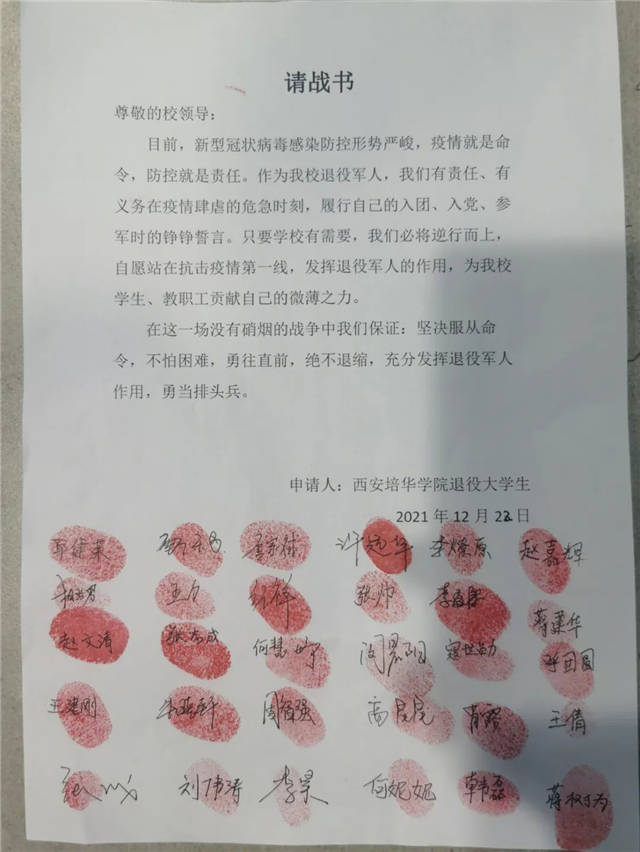 请战书
尊敬的校领导：
目前，新型冠状病毒感染防控形势严峻，疫情就是命
令，防控就是责任。作为我校退役军人，我们有责任、有
义务在疫情肆虐的危急时刻，履行自己的入团、入党、参
军时的铮铮誓言。只要学校有需要，我们必将逆行而上，
自愿站在抗击疫情第一线，发挥退役军人的作用，为我校
学生、教职工贡献自己的微薄之力。
在这一场没有硝烟的战争中我们保证：坚决服从命
令，不怕困难，勇往直前，绝不退缩，充分发挥退役军人
作用，勇当排头兵。
申请人：西安培华学院退役大学生
2021 年 12 月 22 日
赵嘉辉
张帅
赵文涛 何慧
王建刚 高昆昆 王倩
刘伟涛 李昊 何妮妮 韩磊